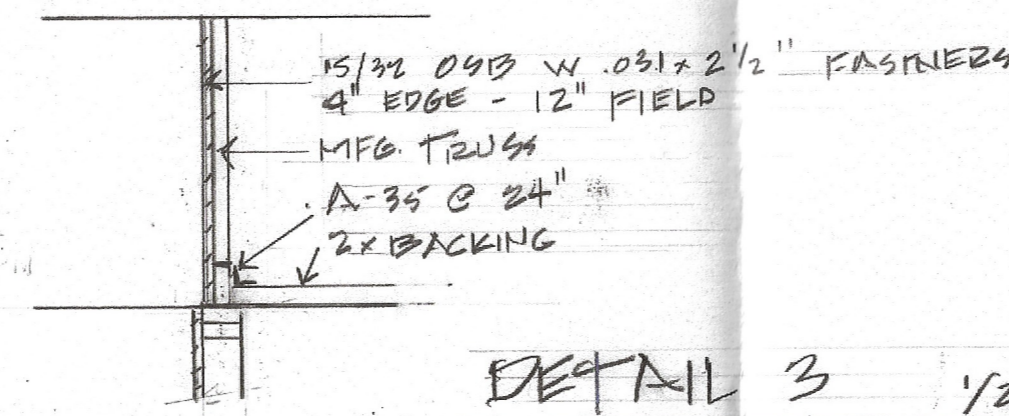 15/32 OSB W .031 x 2 1/2" FASTNERS
4" EDGE - 12" FIELD
MFG. TRUSS
A-35 @ 24"
2x BACKING
DETAIL 3 1/2